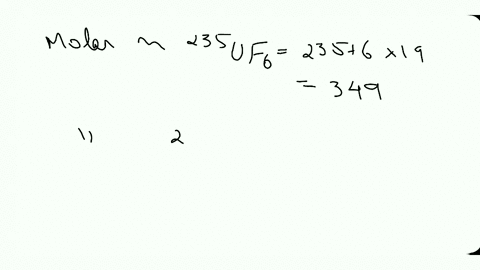 Molar m ²³⁵UF₆ = 235+6×19
= 349
" 2